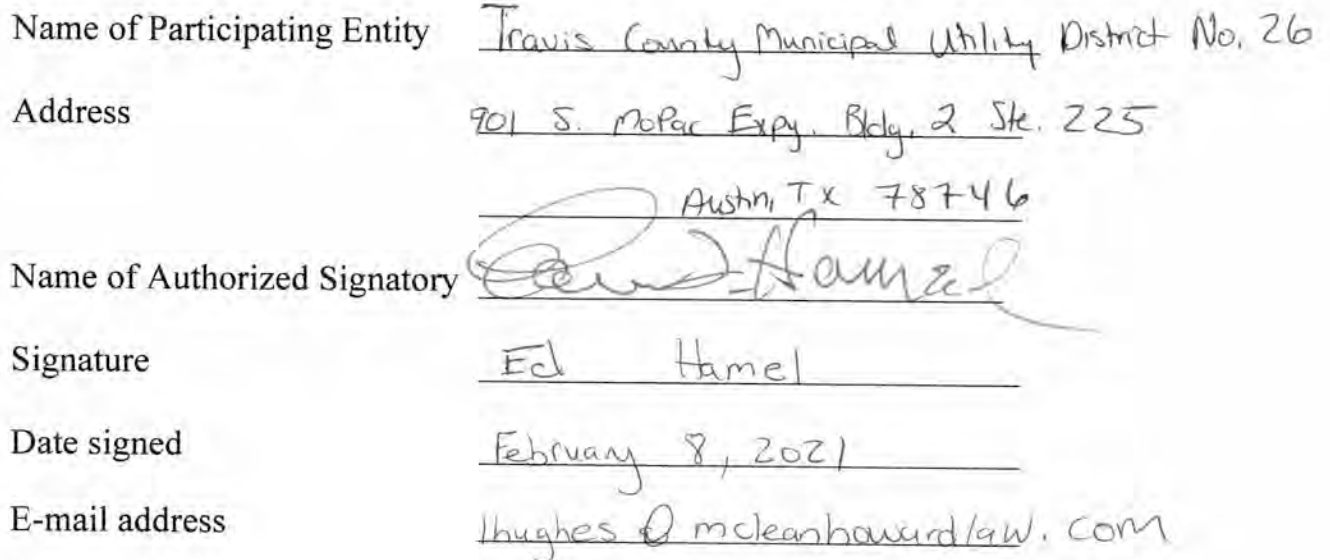 Name of Participating Entity Travis County Municipal Utility District No. 26
Address 901 S. MoPac Expy. Bldg. 2 Ste. 225
Austin, TX 78746
Name of Authorized Signatory Hamel
Signature Ed Hamel
Date signed February 8, 2021
E-mail address lhughes @ mcleanhowardlaw.com